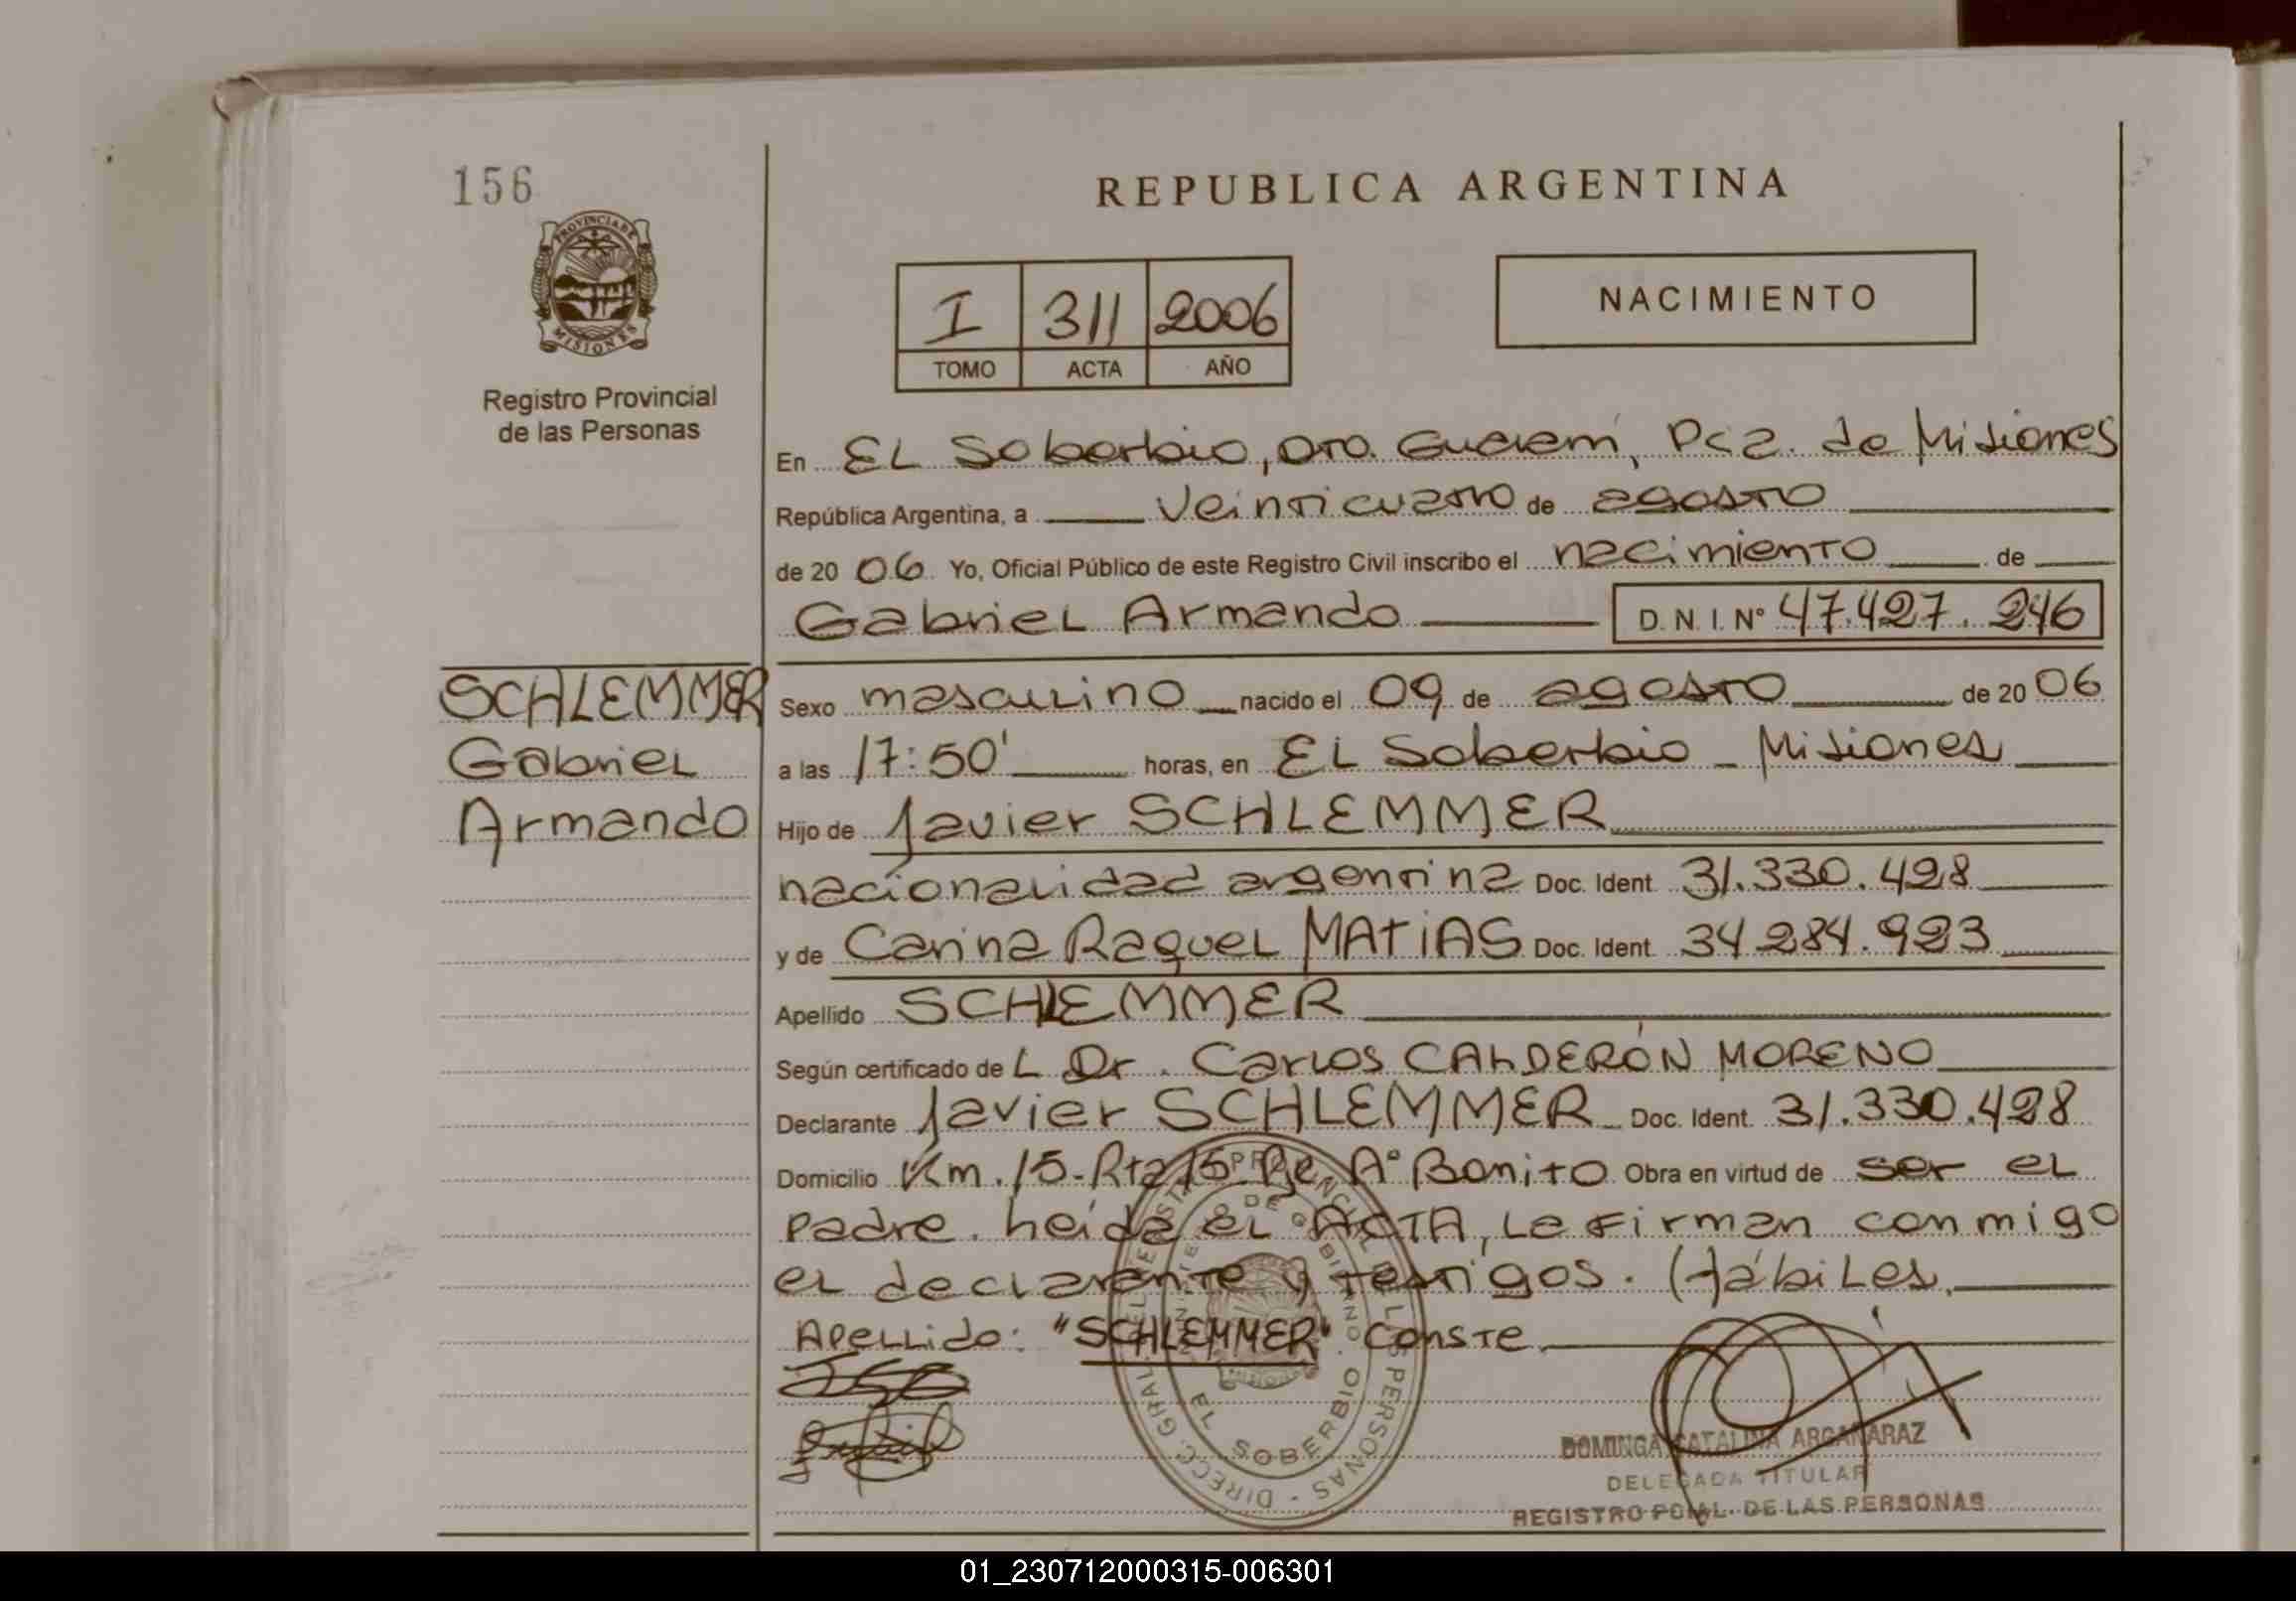 156
REPUBLICA ARGENTINA
PROVINCIA DE MISIONES
I 311 2006
TOMO ACTA AÑO
NACIMIENTO
Registro Provincial
de las Personas
En EL Soberbio, Dto. Guaraní, Pcia. de Misiones
República Argentina, a veinticuatro de agosto
de 2006 Yo, Oficial Público de este Registro Civil inscribo el nacimiento de
Gabriel Armando D.N.I. Nº 47.427.246
SCHLEMMER
Gabriel
Armando
Sexo masculino nacido el 09 de agosto de 2006
a las 17:50' horas, en EL Soberbio - Misiones
Hijo de Javier SCHLEMMER
nacionalidad argentina Doc. Ident. 31.330.428
y de Carina Raquel MATiAS Doc. Ident. 34.284.923
Apellido SCHLEMMER
Según certificado de L Dr. Carlos CALDERÓN MORENO
Declarante Javier SCHLEMMER Doc. Ident. 31.330.428
Domicilio Km. 15-Rta 15 Aº Bonito Obra en virtud de ser el
padre. Leída el ACTA, Le firman conmigo
el declarante y testigos. Hábiles.
Apellido: "SCHLEMMER" Conste
DIRECC. GRAL. DEL REGISTRO PROVINCIAL DE LAS PERSONAS
EL SOBERBIO
DOMINGA CATALINA ARGAÑARAZ
DELEGADA TITULAR
REGISTRO PCIAL. DE LAS PERSONAS
01_230712000315-006301